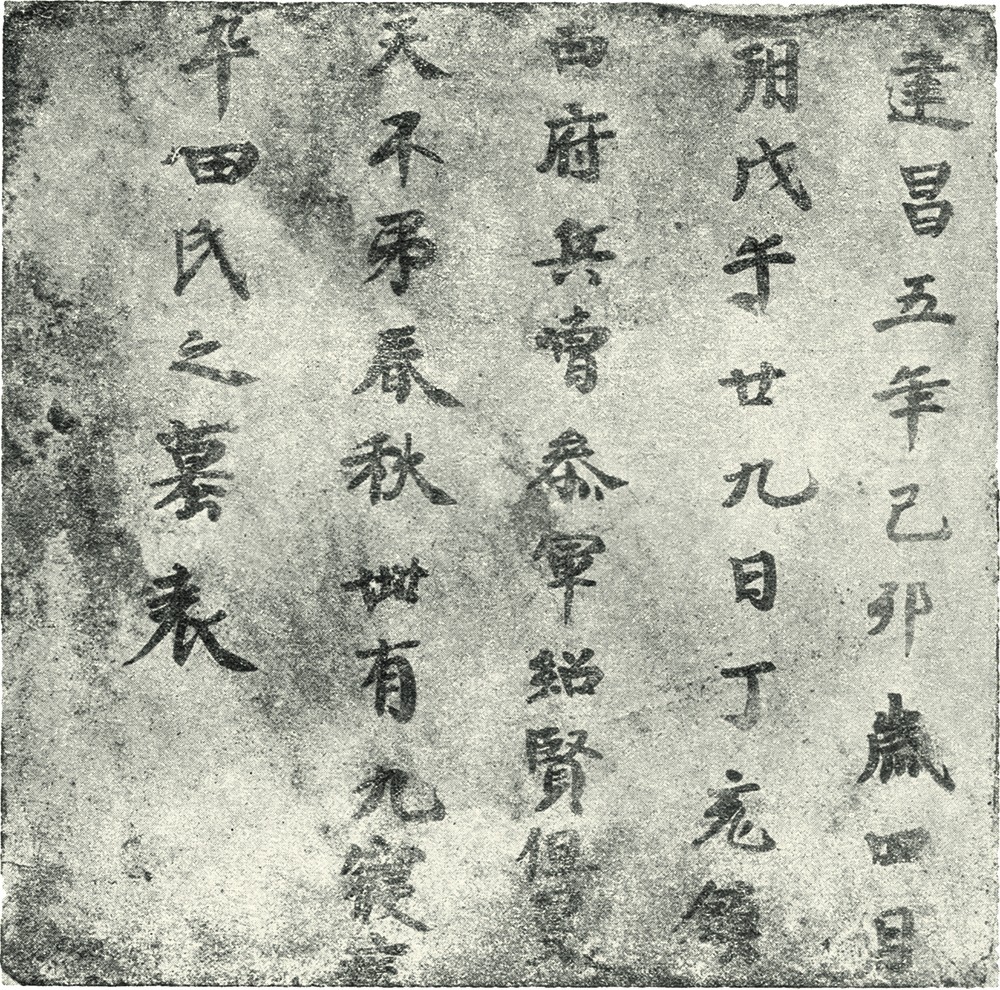 建昌五年己卯歲四月
朔戊午廿九日丁亥鎮
西府兵曹參軍紹賢但旻
天不弔春秋卌有九寢疾
卒田氏之墓表